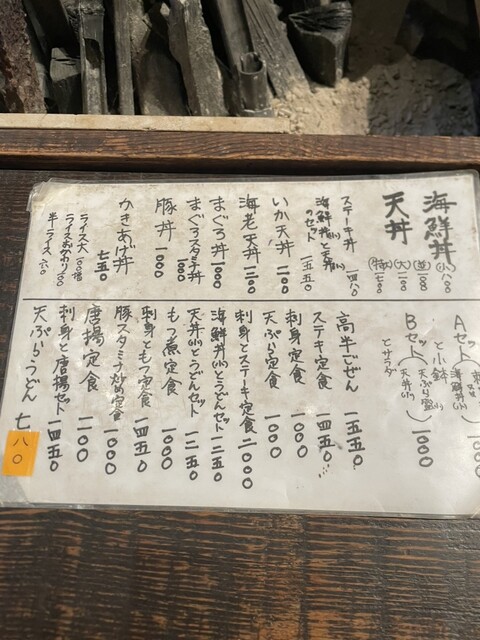 海鮮丼
(小)八〇〇
(並)一一〇〇
天丼
(大)一二〇〇
ステーキ丼 一四八〇
海鮮丼(小)と天丼(小)
のセット 一五五〇
いか天丼 一二〇〇
海老天丼 一二〇〇
まぐろ丼 一〇〇〇
まぐろスタミナ丼 一〇〇〇
豚丼 一〇〇〇
かきあげ丼 七五〇
ライス大 一〇〇増
ライスおかわり 一〇〇
半ライス
Aセット
海鮮丼(小)
と小鉢
Bセット
天ぷら盛(小)
天丼(小)
とサラダ
一〇〇〇
高半ごぜん 一五五〇
ステーキ定食 一四五〇
刺身定食 一〇〇〇
天ぷら定食 一〇〇〇
刺身とステーキ定食 二〇〇〇
海鮮丼(小)とうどんセット 一二五〇
天丼(小)とうどんセット 一二五〇
もつ煮定食 一〇〇〇
刺身ともつ定食 一四五〇
豚スタミナ炒め定食 一〇〇〇
唐揚定食 一一〇〇
刺身と唐揚セット 一四五〇
天ぷらうどん 七八〇